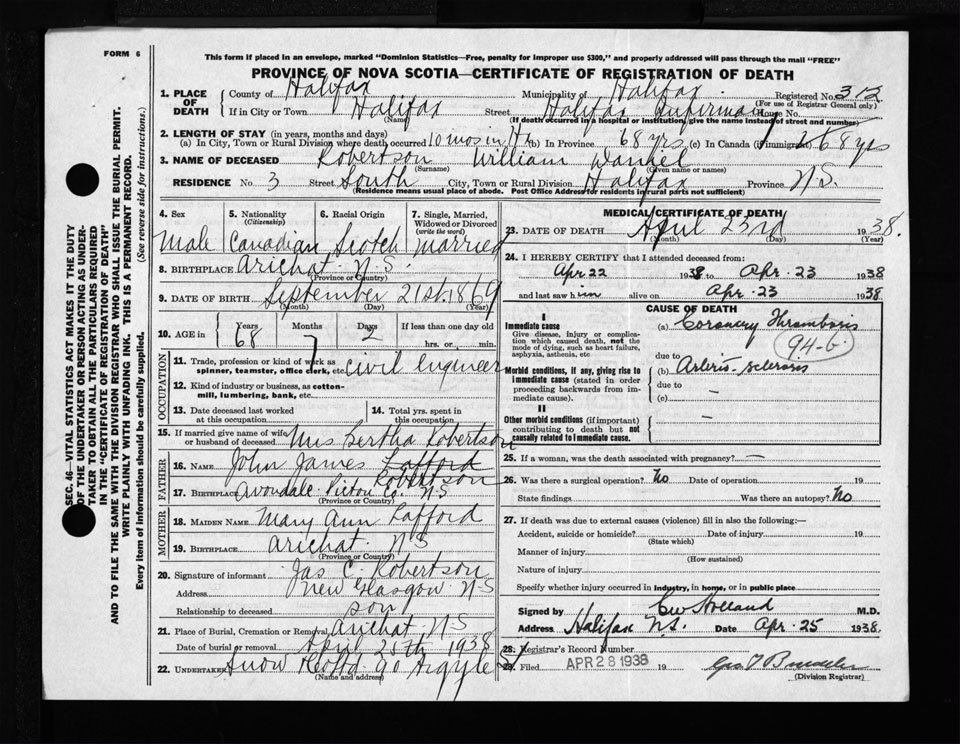 FORM 6
This form if placed in an envelope, marked "Dominion Statistics—Free, penalty for improper use $300," and properly addressed will pass through the mail "FREE"
PROVINCE OF NOVA SCOTIA—CERTIFICATE OF REGISTRATION OF DEATH
1. PLACE OF DEATH
County of Halifax Municipality of Halifax Registered No. 312
(For use of Registrar General only)
If in City or Town Halifax Street Halifax Infirmary House No.
(Name) (If death occurred in a hospital or institution, give the name instead of street and number)
2. LENGTH OF STAY (in years, months and days)
(a) In City, Town or Rural Division where death occurred 10 mos in (b) In Province 68 yrs (c) In Canada (if immigrant) 68 yrs
3. NAME OF DECEASED Robertson William Daniel
(Surname) (Given name or names)
RESIDENCE No. 3 Street South City, Town or Rural Division Halifax Province N.S.
(Residence means usual place of abode. Post Office Address for residents in rural parts not sufficient)
4. Sex Male
5. Nationality (Citizenship) Canadian
6. Racial Origin Scotch
7. Single, Married, Widowed or Divorced (write the word) Married
8. BIRTHPLACE Arichat N.S.
(Province or Country)
9. DATE OF BIRTH September 21st. 1869
(Month) (Day) (Year)
10. AGE in Years 68 Months 7 Days 2 If less than one day old
hrs. or min.
OCCUPATION
11. Trade, profession or kind of work as spinner, teamster, office clerk, etc. Civil Engineer
12. Kind of industry or business, as cotton-mill, lumbering, bank, etc.
13. Date deceased last worked at this occupation
14. Total yrs. spent in this occupation
15. If married give name of wife or husband of deceased Mrs Bertha Robertson
FATHER
16. NAME John James Lafford
Robertson
17. BIRTHPLACE Avondale Pictou Co. N-S
(Province or Country)
MOTHER
18. MAIDEN NAME Mary Ann Lafford
19. BIRTHPLACE Arichat N S
(Province or Country)
20. Signature of informant Jas C. Robertson
Address New Glasgow N-S
Relationship to deceased son
21. Place of Burial, Cremation or Removal Arichat N-S
Date of burial or removal April 1938
22. UNDERTAKER Snow 90 Argyle St
(Name and address)
MEDICAL CERTIFICATE OF DEATH
23. DATE OF DEATH April 23rd 1938.
(Month) (Day) (Year)
24. I HEREBY CERTIFY that I attended deceased from:
Apr 22 1938 to Apr. 23 1938
and last saw him alive on Apr. 23 1938.
CAUSE OF DEATH
I
Immediate cause
Give disease, injury or complication which caused death, not the mode of dying, such as heart failure, asphyxia, asthenia, etc
(a) Coronary Thrombosis
94-b
due to
Morbid conditions, if any, giving rise to immediate cause (stated in order proceeding backwards from immediate cause).
(b) Arterio-sclerosis
due to
(c) —
II
Other morbid conditions (if important) contributing to death but not causally related to immediate cause.
—
25. If a woman, was the death associated with pregnancy? —
26. Was there a surgical operation? No Date of operation 19
State findings Was there an autopsy? No
27. If death was due to external causes (violence) fill in also the following:—
Accident, suicide or homicide? Date of injury 19
(State which)
Manner of injury
(How sustained)
Nature of injury
Specify whether injury occurred in industry, in home, or in public place
Signed by M.D.
Address Halifax N.S. Date Apr. 25 1938.
28. Registrar's Record Number
29. Filed APR 28 1938 19
(Division Registrar)
SEC. 46—VITAL STATISTICS ACT MAKES IT THE DUTY
OF THE UNDERTAKER OR PERSON ACTING AS UNDER-
TAKER TO OBTAIN ALL THE PARTICULARS REQUIRED
IN THE "CERTIFICATE OF REGISTRATION OF DEATH"
AND TO FILE THE SAME WITH THE DIVISION REGISTRAR WHO SHALL ISSUE THE BURIAL PERMIT.
WRITE PLAINLY WITH UNFADING INK. THIS IS A PERMANENT RECORD.
Every item of information should be carefully supplied. (See reverse side for instructions.)